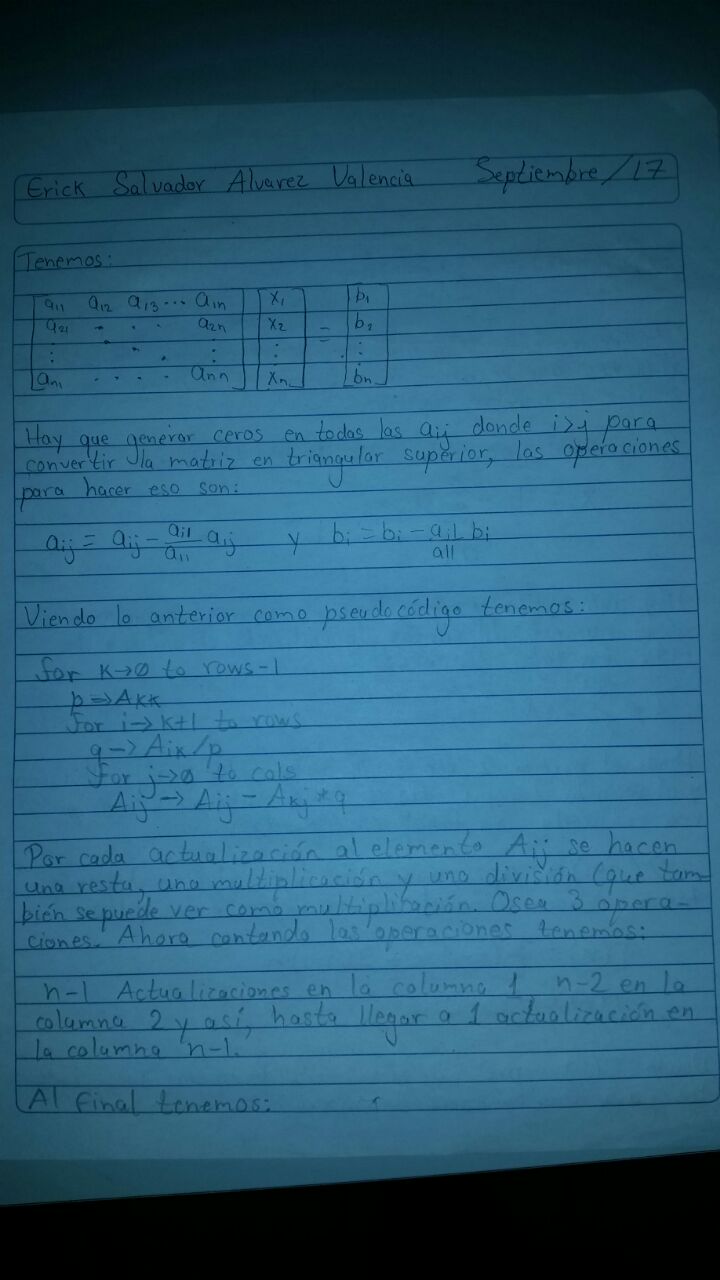 Erick Salvador Alvarez Valencia Septiembre/17
Tenemos:
a11 a12 a13 ... a1n x1 b1
a21 . . . a2n x2 = b2
⋮ . . ⋮ ⋮ ⋮
an1 . . . . ann xn bn
Hay que generar ceros en todas las aij donde i>j para
convertir la matriz en triangular superior, las operaciones
para hacer eso son:
aij = aij - ai1/a11 a1j y bi = bi - ai1/a11 bi
Viendo lo anterior como pseudocódigo tenemos:
for k→0 to rows-1
p→Akk
for i→k+1 to rows
q→Aik/p
for j→0 to cols
Aij→Aij - Akj*q
Por cada actualización al elemento Aij se hacen
una resta, una multiplicación y una división (que tam-
bién se puede ver como multiplicación. Osea 3 opera-
ciones. Ahora contando las operaciones tenemos:
n-1 Actualizaciones en la columna 1 n-2 en la
columna 2 y así, hasta llegar a 1 actualización en
la columna n-1.
Al final tenemos: